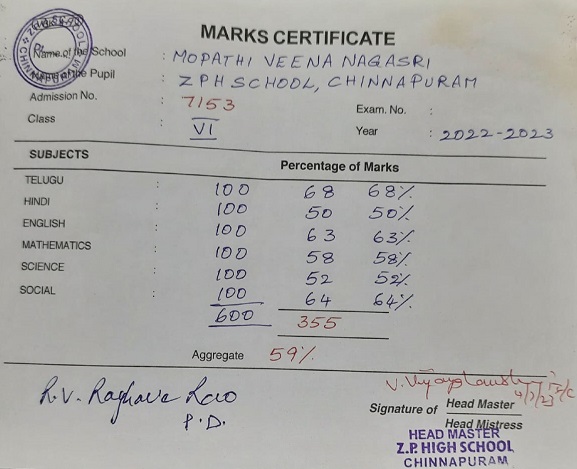 MARKS CERTIFICATE
Z.P.H. SCHOOL CHINNAPURAM
Name of the School : MOPATHI VEENA NAGASRI
Name of the Pupil : Z PH SCHOOL, CHINNAPURAM
Admission No. : 7153 Exam. No. :
Class : VI Year : 2022-2023
SUBJECTS Percentage of Marks
TELUGU : 100 68 68%
HINDI : 100 50 50%
ENGLISH : 100 63 63%
MATHEMATICS : 100 58 58%
SCIENCE : 100 52 52%
SOCIAL : 100 64 64%
600 355
Aggregate 59%
R.V. Raghava Rao
P.D.
4/7/23
Signature of Head Master
Head Mistress
HEAD MASTER
Z.P. HIGH SCHOOL
CHINNAPURAM